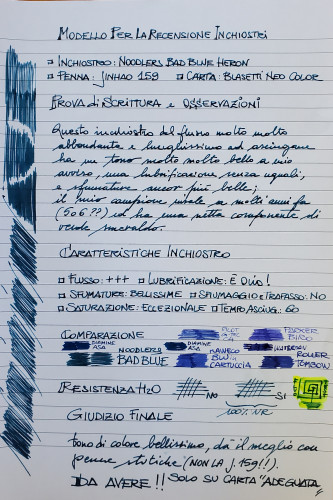 Modello Per La Recensione Inchiostri
▫ Inchiostro: Noodlers Bad Blue Heron
▫ Penna: Jinhao 159 ▫ Carta: Blasetti Neo Color
Prova di Scrittura e Osservazioni
Questo inchiostro dal flusso molto molto
abbondante e lunghissimo ad asciugare
ha un tono molto molto bello a mio
avviso, una lubrificazione senza uguali,
e sfumature ancor più belle;
il mio campione risale a molti anni fa
(5 o 6 ??) ed ha una netta componente di
verde smeraldo.
Caratteristiche Inchiostro
▫ Flusso: +++ ▫ Lubrificazione: È Olio!
▫ Sfumature: Bellissime ▫ Spiumaggio e Trapasso: No
▫ Saturazione: Eccezionale ▫ Tempo Asciug.: 60
Comparazione
Diamine
ASA
Noodlers
Bad Blue
Diamine
ASA
Cartuccia
Parker
Roller
Tombow
Resistenza H2O No Si
100% NR
Giudizio Finale
tono di colore bellissimo, dà il meglio con
penne stitiche (NON LA J.159!!).
DA AVERE!! SOLO SU CARTA "ADEGUATA"